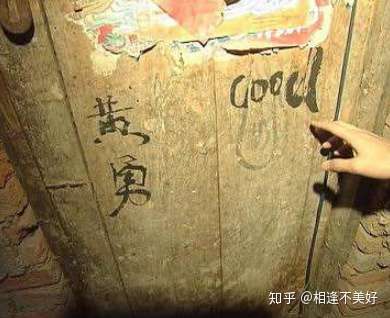 黄勇
good
知乎 @相逢不美好